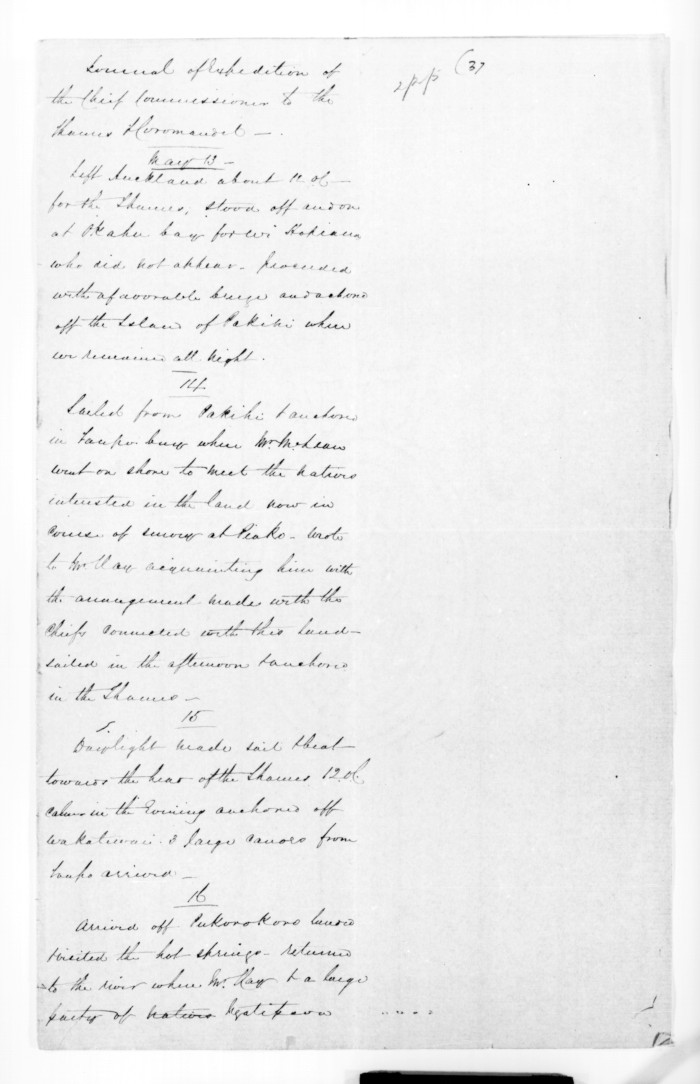 Journal of Expedition of
the Chief Commissioner to the
Thames & Coromandel —.
2 p.p. (37
May 13 —
Left Auckland about 12 oC —
for the Thames, stood off and on
at Okahu bay for Wi Hopiana
who did not appear – proceeded
with a favorable breeze and anchored
off the Island of Pakihi where
we remained all night.
14
Sailed from Pakihi & anchored
in Taupo bay where Mr. McLean
went on shore to meet the natives
interested in the land now in
course of survey at Piako – wrote
to Mr. Hay acquainting him with
the arrangement made with the
Chiefs connected with this land —
sailed in the afternoon & anchored
in the Thames —
15
Daylight made sail & beat
towards the head of the Thames 12 oC
calm in the Evening anchored off
Wakatiwai. 3 large canoes from
Taupo arrived —
16
Arrived off Pukorokoro landed
& visited the hot springs – returned
to the river where Mr. Hay & a large
party of natives Ngatipaoa